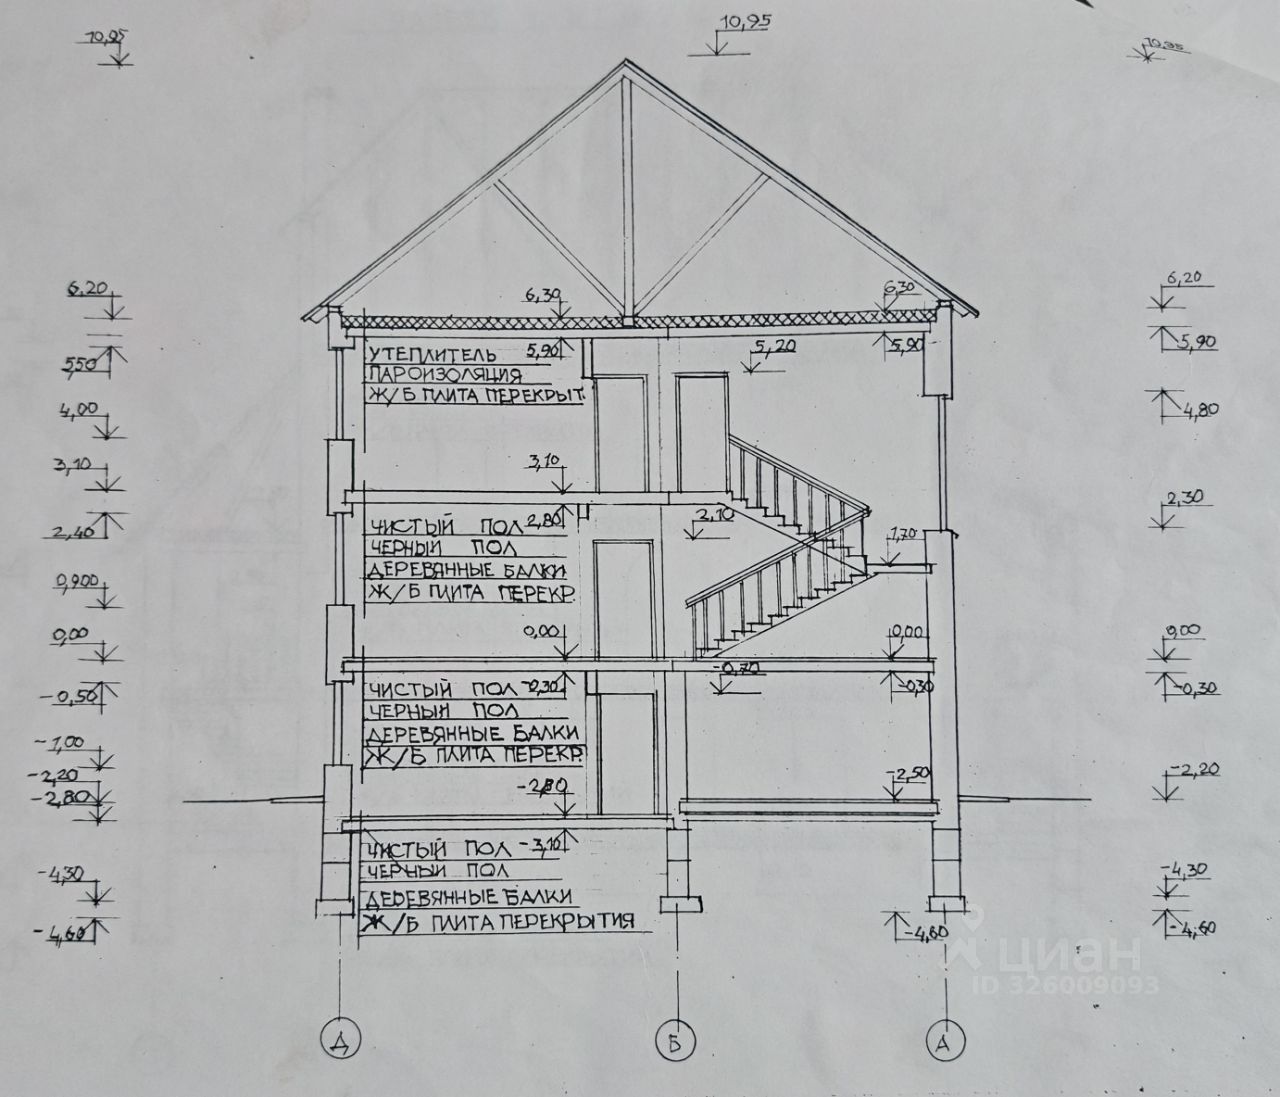 10,95
10,95
10,95
6,20
6,30
6,30
6,20
550
УТЕПЛИТЕЛЬ 5,90
5,20
5,90
5,90
ПАРОИЗОЛЯЦИЯ
Ж/Б ПЛИТА ПЕРЕКРЫТ.
4,00
4,80
3,10
3,10
2,30
2,40
ЧИСТЫЙ ПОЛ 2,80
2,10
1,70
ЧЕРНЫЙ ПОЛ
ДЕРЕВЯННЫЕ БАЛКИ
0,900
Ж/Б ПЛИТА ПЕРЕКР.
0,00
0,00
0,00
0,00
-0,50
ЧИСТЫЙ ПОЛ -0,30
-0,70
-0,30
-0,30
ЧЕРНЫЙ ПОЛ
ДЕРЕВЯННЫЕ БАЛКИ
-1,00
Ж/Б ПЛИТА ПЕРЕКР.
-2,20
-2,50
-2,20
-2,80
-2,80
ЧИСТЫЙ ПОЛ -3,10
ЧЕРНЫЙ ПОЛ
-4,30
-4,30
ДЕРЕВЯННЫЕ БАЛКИ
Ж/Б ПЛИТА ПЕРЕКРЫТИЯ
-4,60
-4,60
-4,60
циан
ID 326009093
Д
Б
А